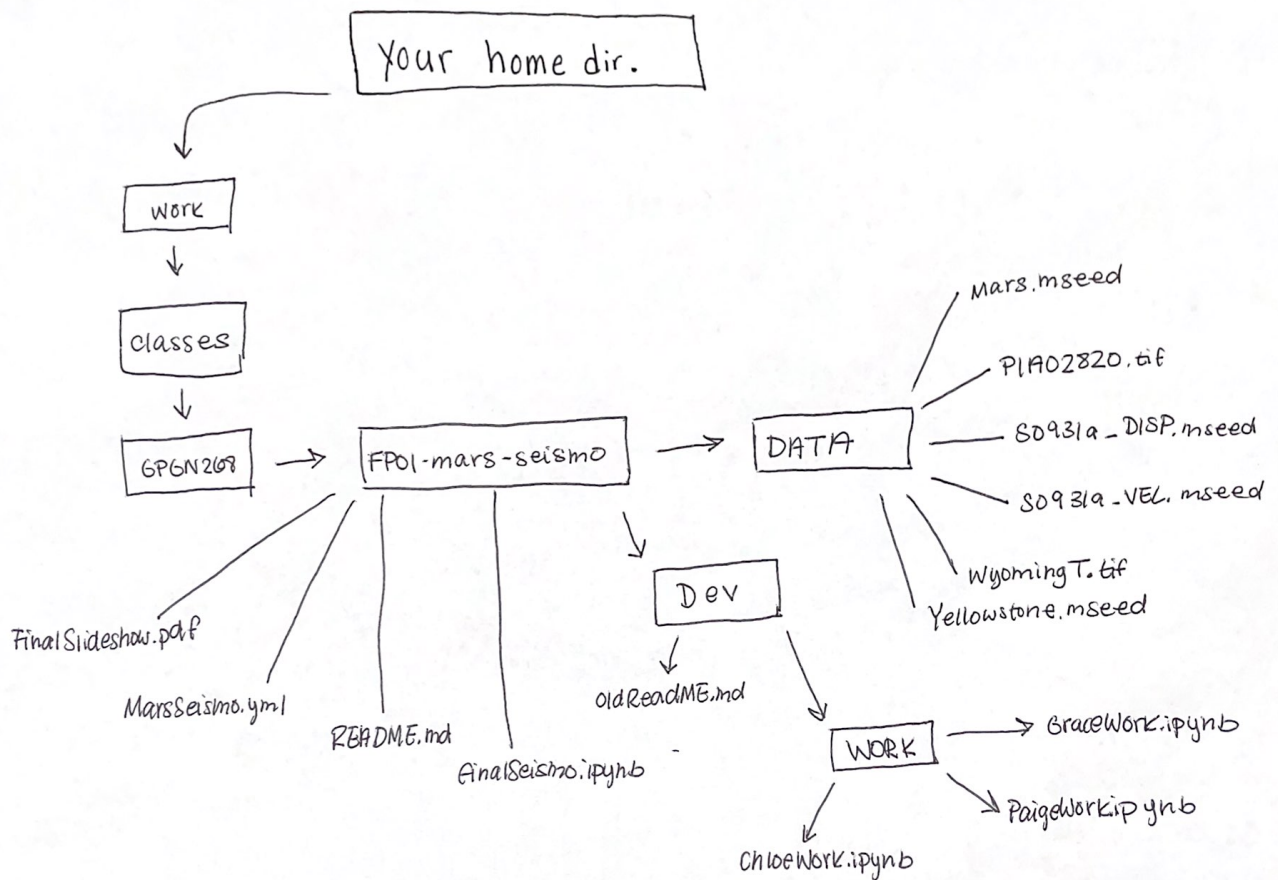 Your home dir.
work
classes
GPGN268
FP01-mars-seismo
DATA
Mars.mseed
PIA02820.tif
S0931a_DISP.mseed
S0931a_VEL.mseed
WyomingT.tif
Yellowstone.mseed
Dev
FinalSlideshow.pdf
MarsSeismo.yml
README.md
FinalSeismo.ipynb
OldReadME.md
WORK
GraceWork.ipynb
PaigeWork.ipynb
ChloeWork.ipynb